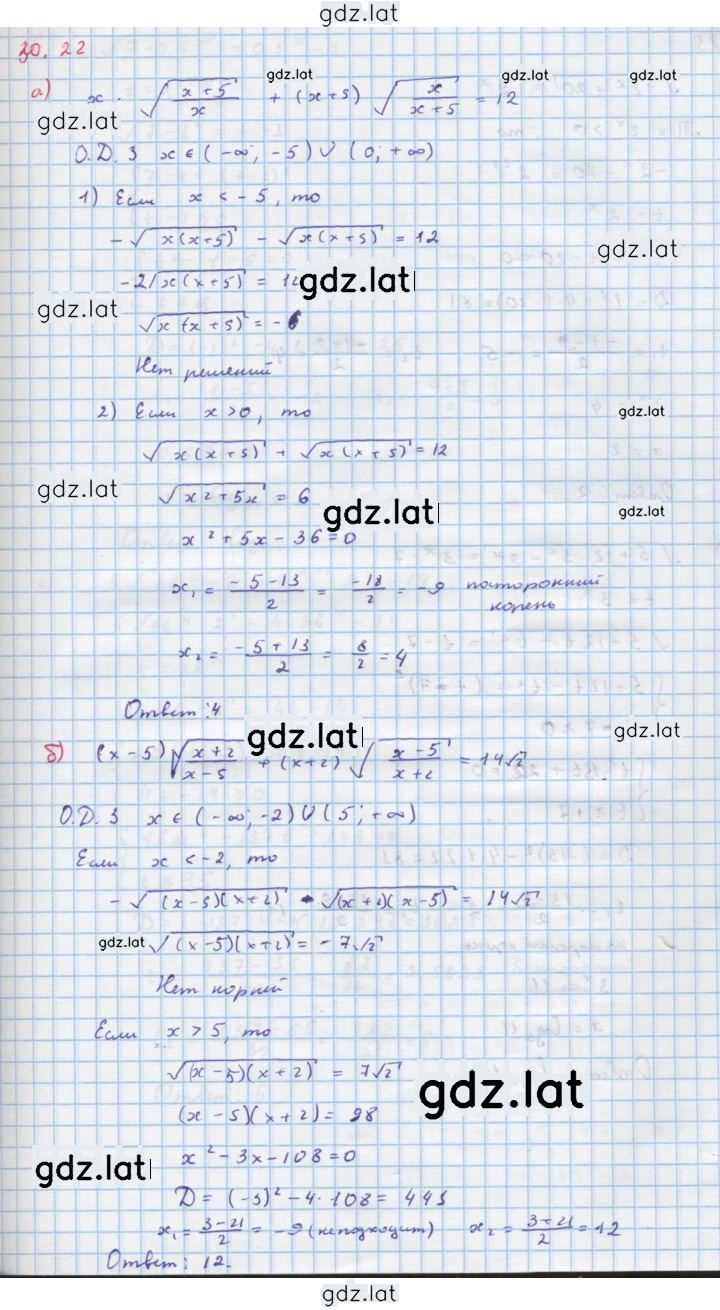 gdz.lat
30. 22
gdz.lat gdz.lat
а) x · √((x+5)/x) + (x+5) √(x/(x+5)) = 12
gdz.lat
О.Д.З x ∈ (-∞; -5) ∪ (0; +∞)
1) Если x < -5, то
-√(x(x+5)) - √(x(x+5)) = 12
gdz.lat
-2√(x(x+5)) = 12
gdz.lat
gdz.lat
√(x(x+5)) = -6
Нет решений
2) Если x > 0, то
gdz.lat
√(x(x+5)) + √(x(x+5)) = 12
gdz.lat
√(x²+5x) = 6
gdz.lat
gdz.lat
x² + 5x - 36 = 0
x₁ = (-5-13)/2 = -18/2 = -9 посторонний
корень
x₂ = (-5+13)/2 = 8/2 = 4
Ответ: 4
gdz.lat
б) (x-5)√((x+2)/(x-5)) + (x+2)√((x-5)/(x+2)) = 14√2
О.Д.З x ∈ (-∞; -2) ∪ (5; +∞)
Если x < -2, то
-√((x-5)(x+2)) - √((x+2)(x-5)) = 14√2
gdz.lat
√((x-5)(x+2)) = -7√2
Нет корней
Если x > 5, то
√((x-5)(x+2)) = 7√2
gdz.lat
(x-5)(x+2) = 98
gdz.lat
x² - 3x - 108 = 0
D = (-3)² - 4·108 = 441
x₁ = (3-21)/2 = -9 (не подходит) x₂ = (3+21)/2 = 12
Ответ: 12.
gdz.lat